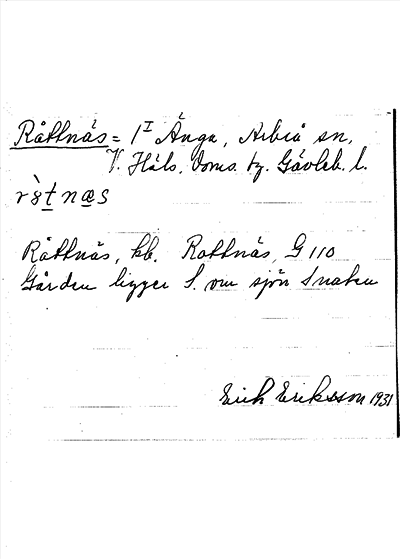 Råttnäs = 1 I Änga, Arbrå sn,
V. Häls. doms. tg. Gävleb. l.
Råttnäs, kb. Rottnäs, G 110
Gården ligger S. om sjön Snaten
Erik Eriksson 1931